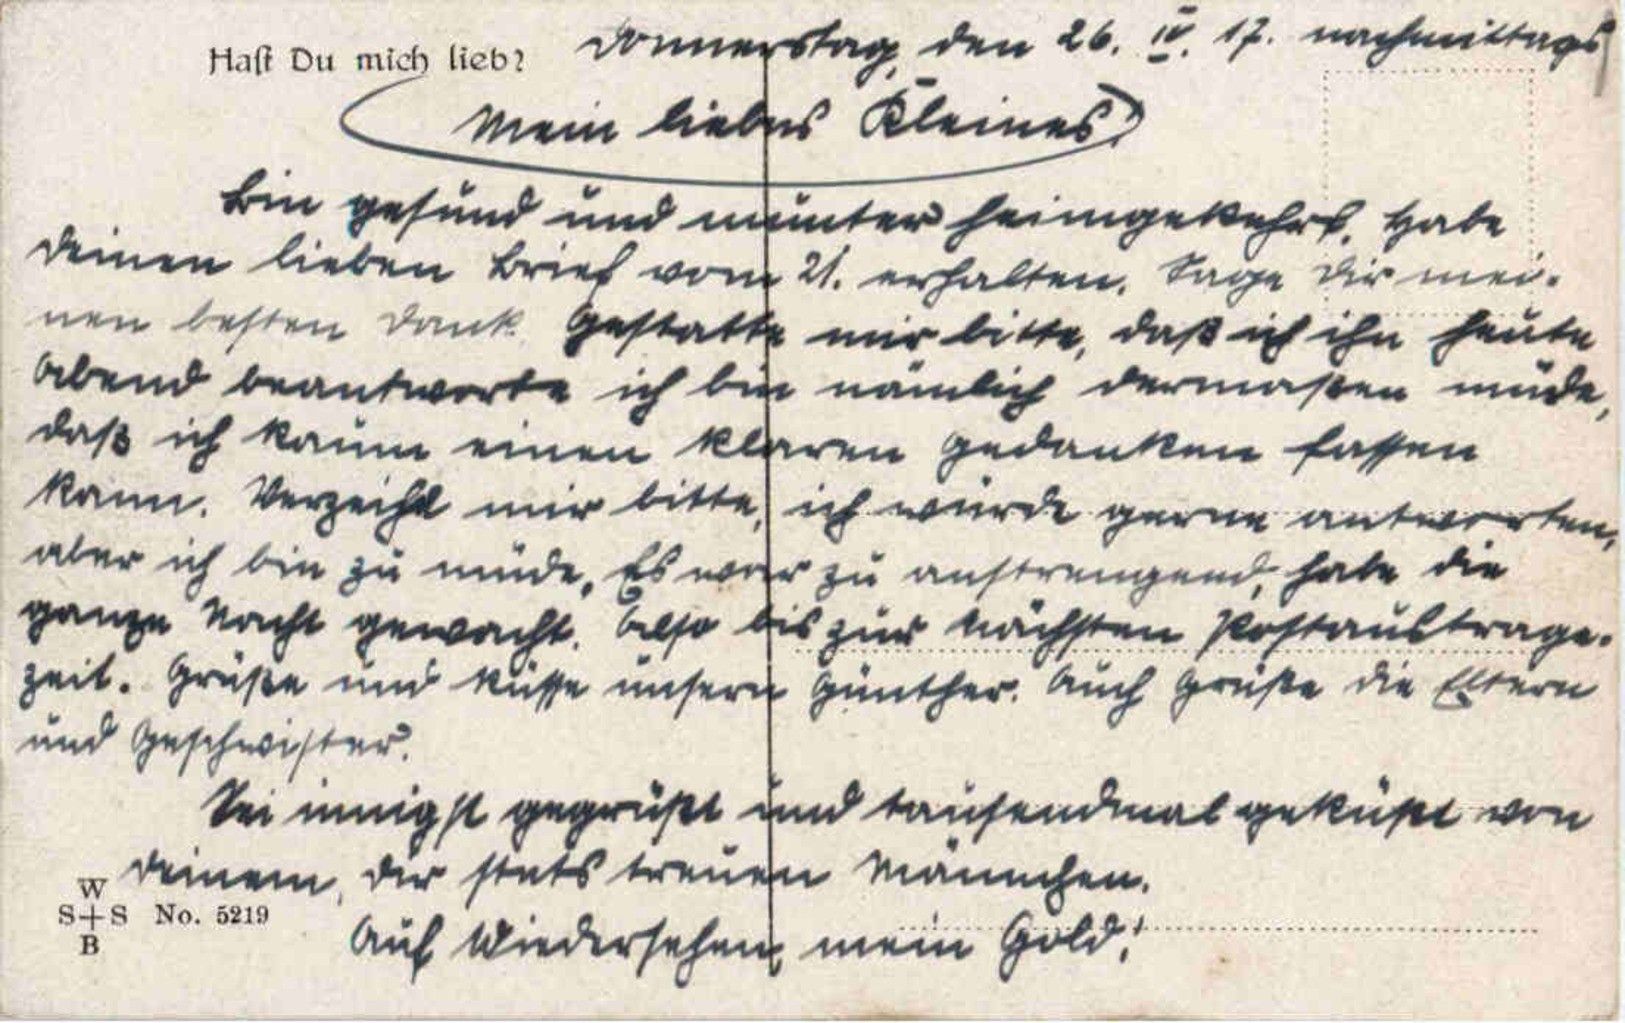 Hast Du mich lieb?
Donnerstag, den 26. IV. 17. nachmittags
Mein liebes Kleines!
Bin gesund und munter heimgekehrt. Habe
Deinen lieben Brief vom 21. erhalten. Sage Dir mei-
nen besten Dank. Gestatte mir bitte, daß ich ihn heute
Abend beantworte ich bin nämlich dermaßen müde,
daß ich kaum einen klaren Gedanken fassen
kann. Verzeiht mir bitte, ich würde gerne antworten,
aber ich bin zu müde. Es war zu anstrengend, habe die
ganze Nacht gewacht. Also bis zur nächsten Postaustrage-
zeit. Grüße und küsse unsern Günther. Auch Grüße die Eltern
und Geschwister.
Sei innigst gegrüßt und tausendmal geküßt von
Deinem, Dir stets treuen Männchen.
Auf Wiedersehen mein Gold!
W
S+S No. 5219
B